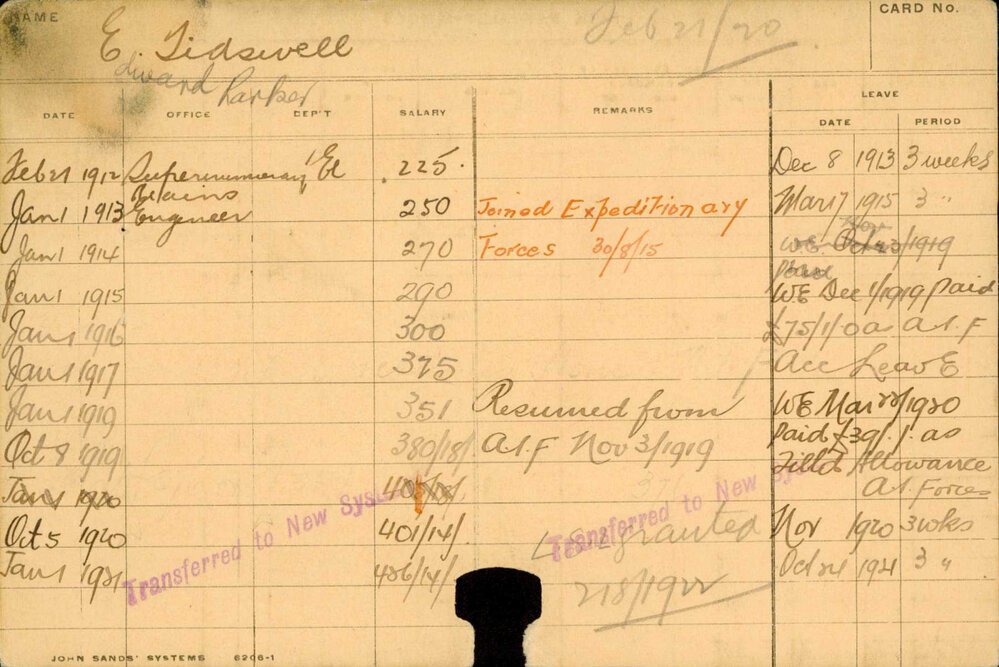 NAME
CARD No.
E. Tidswell
Feb 21/20
Edward Parker
DATE OFFICE DEP'T SALARY REMARKS LEAVE
DATE PERIOD
Feb 21 1912 Supernumerary El 225. Dec 8 1913 3 weeks
Jan 1 1913 Mains Engineer 250 Joined Expeditionary Mar 17 1915 3 "
Jan 1 1914 270 Forces 30/8/15 W.E. Oct 23/1919
Nov
Jan 1 1915 290 WE Dec 1/1919 paid
Jan 1 1916 300 £75/1/0 as A.I.F
Jan 1 1917 375 Acc Leave
Jan 1 1919 351 Resumed from WE Mar 22/1920
Oct 8 1919 380/18/ A.I.F Nov 3/1919 Paid £39/./. as
Field Allowance
Jan 1 1920 401/18/ A.I. Forces
Oct 5 1920 401/14/. granted Nov 1920 3 wks
Jan 1 1921 426/14/. 2/8/1922 Oct 24 1921 3 "
Transferred to New System
Transferred to New System
JOHN SANDS' SYSTEMS 6206-1